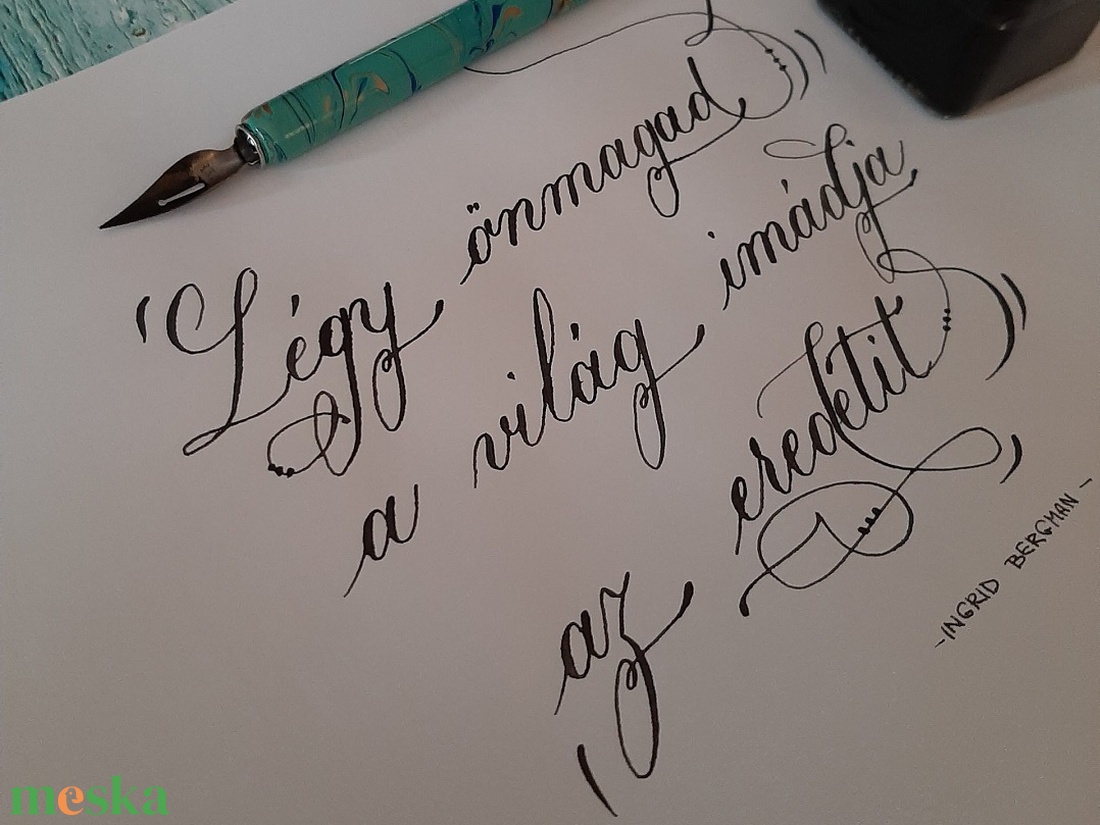 Légy önmagad
a világ imádja
az eredetit
-INGRID BERGMAN-
meska